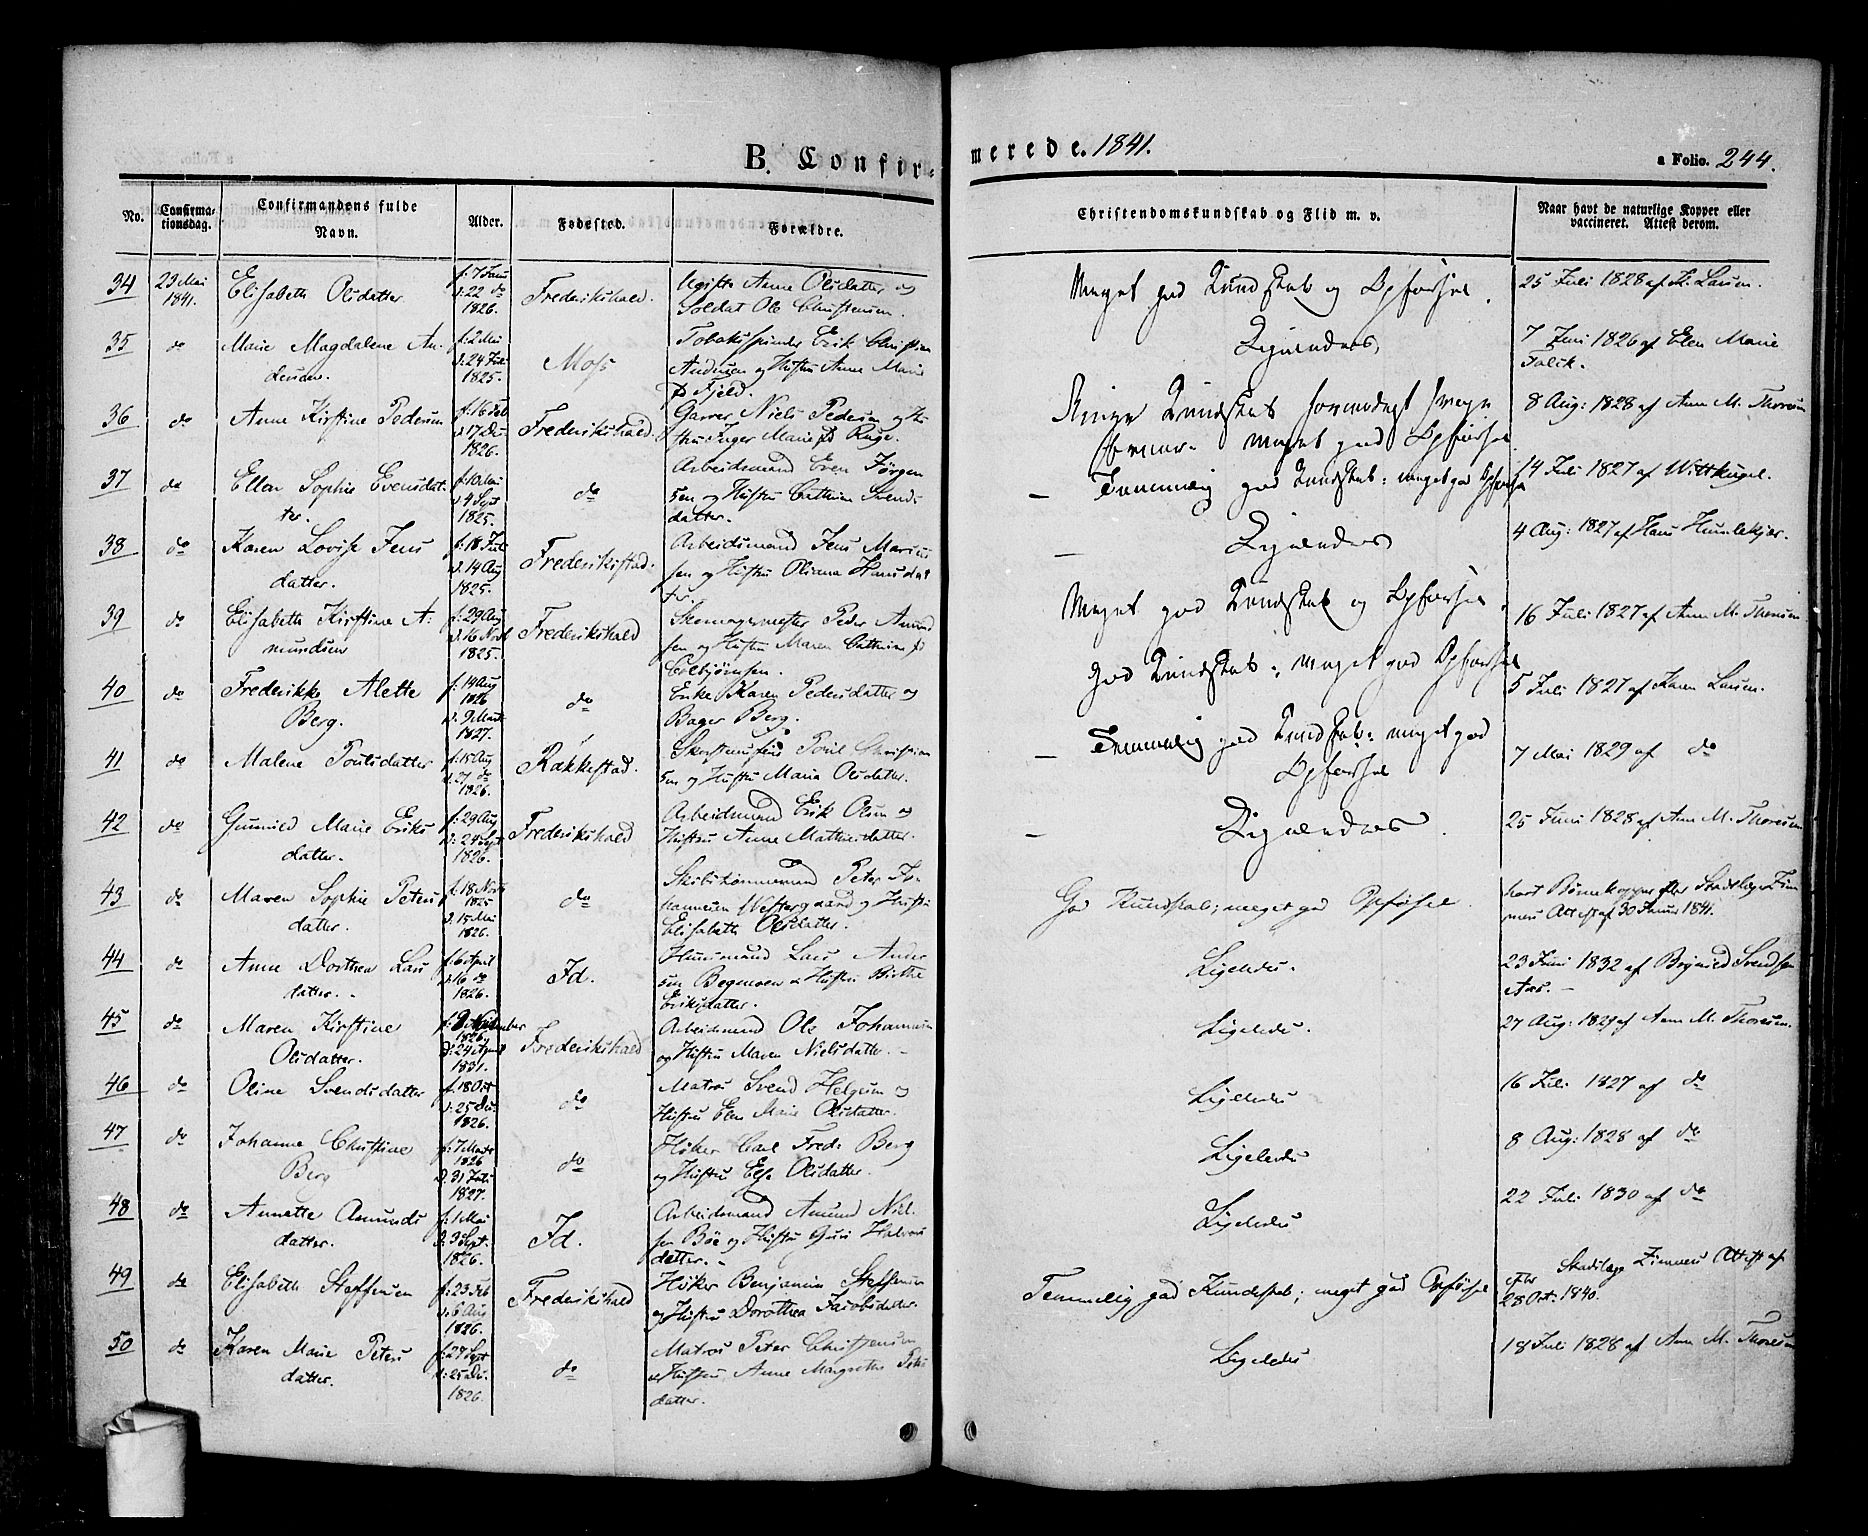 B. Confir-
merede. 1841.
a Folio. 244.
No.
Confirma-
tionsdag.
Confirmandens fulde
Navn.
Alder.
Fødested.
Forældre.
Christendomskundskab og Flid m. v.
Naar havt de naturlige Kopper eller
vaccineret. Attest derom.
34 23 Mai 1841. Elisabeth Olsdatter f: 7 Janu d: 22 do 1826. Frederikshald. Ugifte Anne Olsdatter og
Soldat Ole Christensen. Meget god Kundskab og Opførsel. 25 Juli 1828 af K. Larsen.
35 do Marie Magdalene An-
dersen. f: 2 Mai d: 24 1825. Moss Tobakspinder Erik Christian
Andersen og Hustru Anne Marie
Fjeld. Ligeledes 7 Juni 1826 af Elen Marie
Falck.
36 do Anne Kirstine Pedersen f: 16 Feb d: 17 De: 1826. Frederikshald. Garver Niels Pedersen og Hu-
stru Inger Marie fd Ruge. Ringe Kundskab formedelst svage
Evner. meget god Opførsel 8 Aug: 1828 af Ann M. Thoresen
37 do Ellen Sophie Evensdat-
ter. f: 10 Mai d: 4 Sept 1825. do Arbeidsmand Even Jørgen
sen og Hustru Cathrine Svends
datter. – Temmelig god Kundskab; meget god Opførsel 14 Juli 1827 af Wittkugel.
38 do Karen Lovise Jens
datter. f: 18 Juli d: 14 Aug 1825. Frederikstad. Arbeidsmand Jens Marius
sen og Hustru Oliana Hansdat
ter. – Ligeledes 4 Aug: 1827 af Hans Humlekjær.
39 do Elisabeth Kirstine A:
mundsen f: 29 Aug d: 16 Novb 1825. Frederikshald Skomagermester Peder Amund
sen og Hustru Maren Cathrine fd
Meget god Kundskab og Opførsel. 16 Juli 1827 af Ann M. Thoresen.
40 do Frederikke Alette
Berg. f: 14 Aug 1826 d: 9 Marts 1827. do Enke Karen Pedersdatter og
Bager Berg. God Kundskab; meget god Opførsel 5 Juli 1827 af Karen Larsen.
41 do Malene Poulsdatter f: 15 Aug d: 27 do 1826. Rakkestad. Poul Christian
sen og Hustru Maria Olsdatter. – Temmelig god Kundskab; meget god
Opførsel 7 Mai 1829 af do
42 do Gunnild Marie Eriks
datter. f: 29 Aug d: 24 Sept 1826. Frederikshald Arbeidsmand Erik Olsen og
Hustru Anne Mathiesdatter. – Ligeledes. 25 Juni 1828 af Ann M. Thoresen
43 do Maren Sophie Peters
datter. f: 18 Novb 1825 d: 15 Mai 1826. do Skibstømmermand Peter Jo-
hannesen Vestergaard og Hustru
Elisabeth Olsdatter. God Kundskab; meget god Opførsel. havt Børnekopper efter Stadslæge Zim
mers Attest af 30 Januar 1841.
44 do Anne Dorthea Lars
datter. f: 6 April d: 16 do 1826. Id. Huusmand Lars Ander
sen og Hustru Birthe
Eriksdatter. Ligeledes. 23 Juni 1832 af Svendsen
Aas.
45 do Maren Kirstine
Olsdatter. 1826, d: 24 April 1831. Frederikshald Arbeidsmand Ole Johannesen
og Hustru Maren Nielsdatter. Ligeledes. 27 Aug: 1827 af Ann M. Thoresen.
46 do Oline Svendsdatter f: 18 Oct d: 25 De: 1826. do Matros Svend Helgesen og
Hustru Elen Marie Olsdatter. Ligeledes 16 Juli 1827 af do
47 do Johanne Christine
Berg f: 7 Marts 1826 d: 31 Juli 1827. do Høker Carl Fredr: Berg
og Hustru Else Olsdatter. Ligeledes 8 Aug: 1828 af do
48 do Annette Amunds
datter. f: 1 Mai d: 3 Sept. 1826. Id. Arbeidsmand Amund Niel-
sen Bøe og Hustru Guri Halvors
datter. Ligeledes 22 Juli 1830 af do
49 do Elisabeth Steffensen f: 23 Feb d: 6 Aug 1826. Frederikshald Høker Benjamin Steffensen
og Hustru Dorothea Jacobsdatter. Temmelig god Kundskab; meget god Opførsel efter Stadslæge Zimmers Attest af
28 Oct: 1840.
50 do Karen Marie Peters
datter. f: 27 Sept d: 25 De: 1826. do Matros Peter Christensen
og Hustru Anne Margrethe
datter. Ligeledes 18 Juli 1828 af Ann M. Thoresen